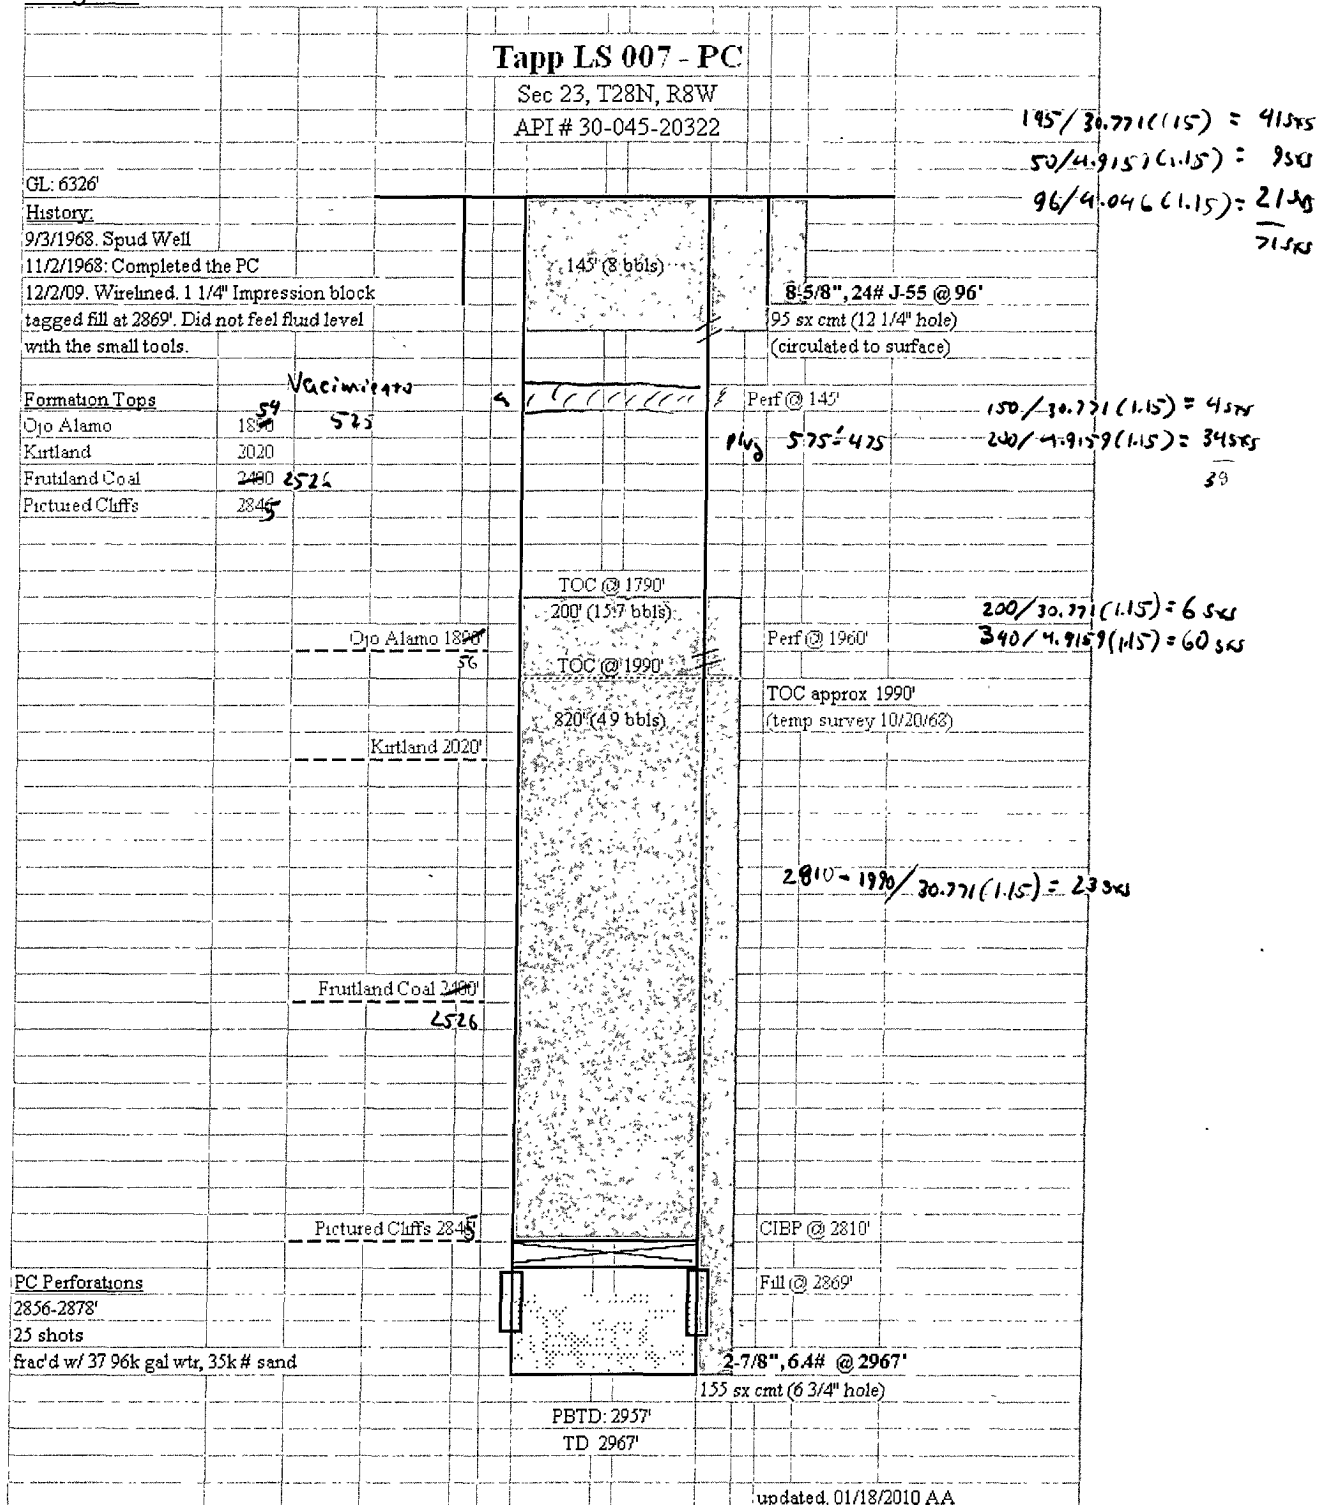 Tapp LS 007 - PC
Sec 23, T28N, R8W
API # 30-045-20322
GL: 6326'
History:
9/3/1968. Spud Well
11/2/1968: Completed the PC
12/2/09. Wirelined. 1 1/4" Impression block
tagged fill at 2869'. Did not feel fluid level
with the small tools.
145' (8 bbls)
8-5/8", 24# J-55 @ 96'
95 sx cmt (12 1/4" hole)
(circulated to surface)
50/4.9159(1.15) = 9sxs
96/4.046(1.15) = 21sxs
71sxs
Formation Tops
Nacimiento
525
Ojo Alamo 1890 54
Kirtland 2020
Fruitland Coal 2480 2526
Pictured Cliffs 2845
Perf @ 145'
plug 575'-475
150/30.771(1.15) = 4sxs
200/4.9159(1.15) = 34sxs
39
TOC @ 1790'
200' (15.7 bbls)
Ojo Alamo 1890'
56
Perf @ 1960'
200/30.771(1.15) = 6 sxs
340/4.9159(1.15) = 60 sxs
TOC @ 1990'
TOC approx 1990'
(temp survey 10/20/68)
820' (4.9 bbls)
Kirtland 2020'
2810 - 1990/30.771(1.15) = 23 sxs
Fruitland Coal 2480'
2526
Pictured Cliffs 2845'
CIBP @ 2810'
PC Perforations
2856-2878'
25 shots
frac'd w/ 37 96k gal wtr, 35k # sand
Fill @ 2869'
2-7/8", 6.4# @ 2967'
155 sx cmt (6 3/4" hole)
PBTD: 2957'
TD 2967'
updated. 01/18/2010 AA